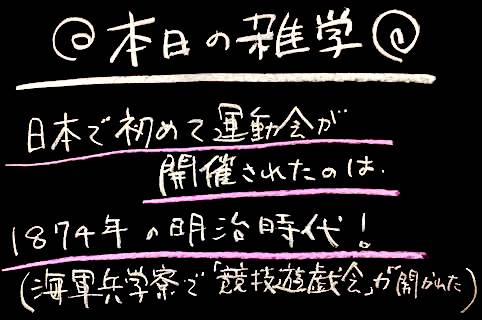 @本日の雑学@
日本で初めて運動会が
開催されたのは、
1874年の明治時代!
(海軍兵学寮で「競技遊戯会」が開かれた)